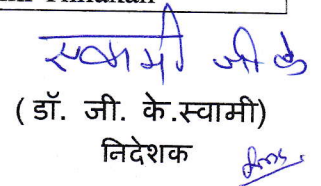 स्वामी जी के
( डॉ. जी. के.स्वामी)
निदेशक